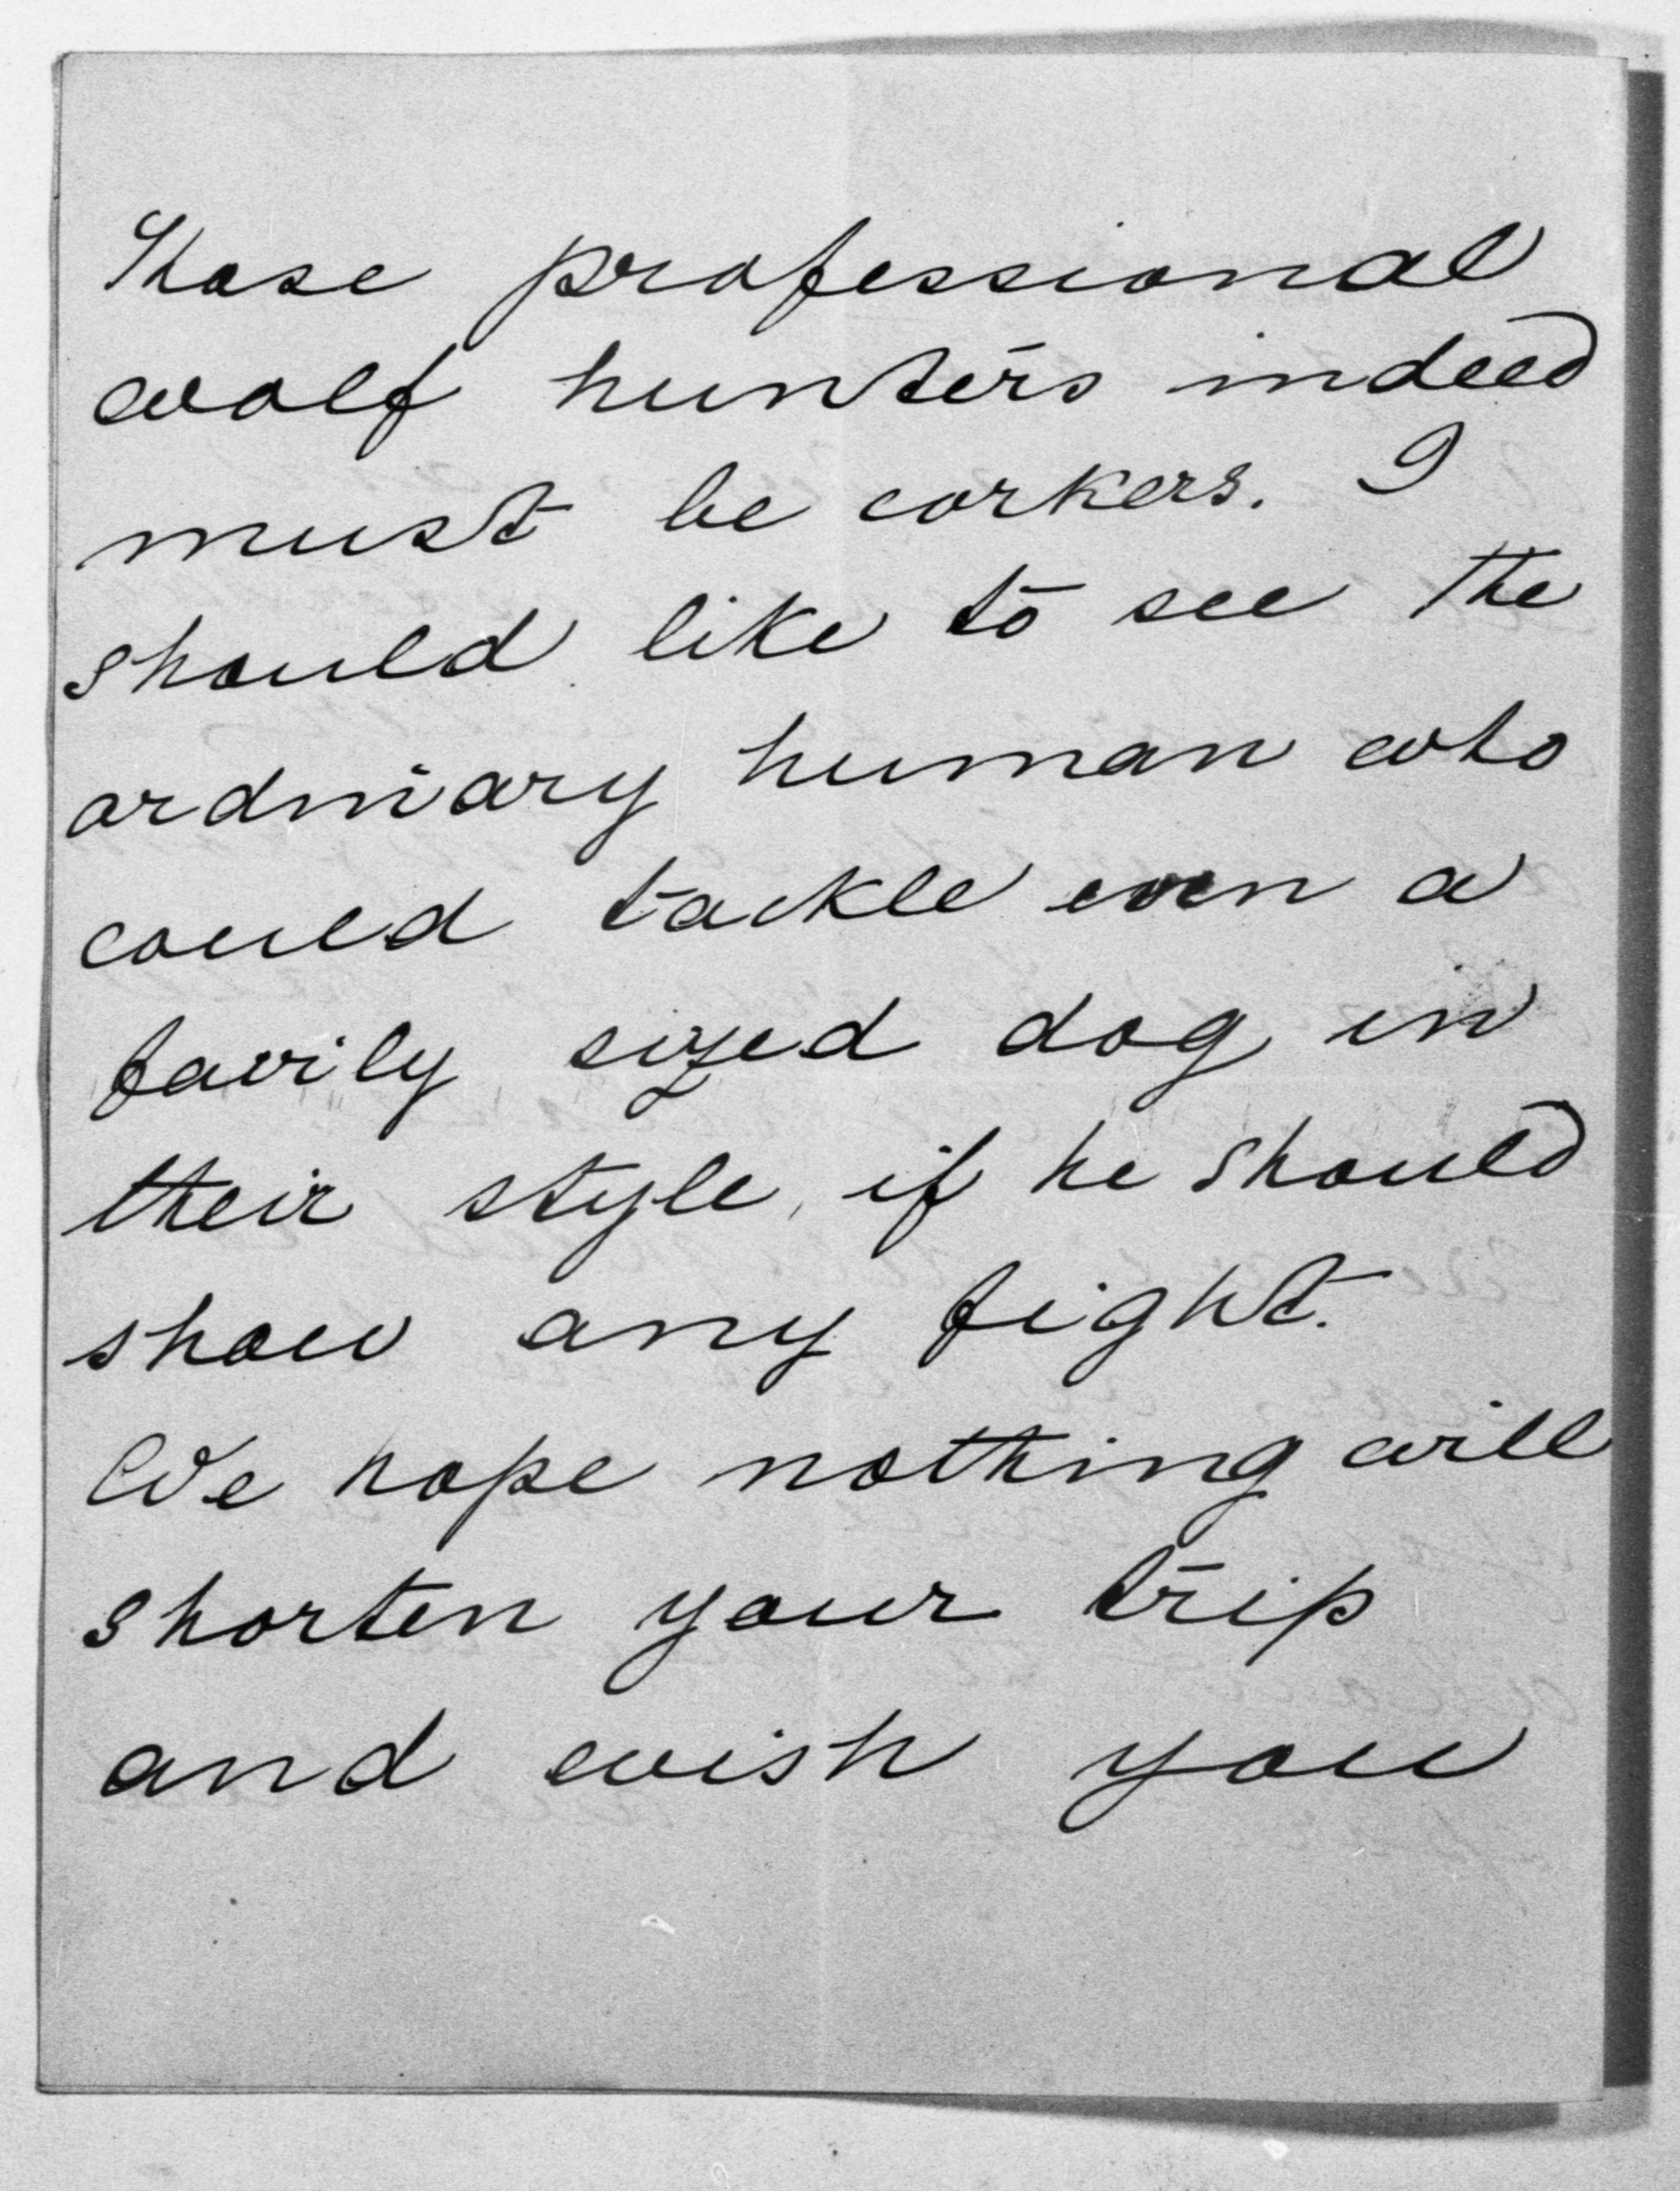 Those professional
wolf hunters indeed
must be corkers. I
should like to see the
ordinary human who
could tackle even a
fairily sized dog in
their style, if he should
show any fight.
We hope nothing will
shorten your trip
and wish you